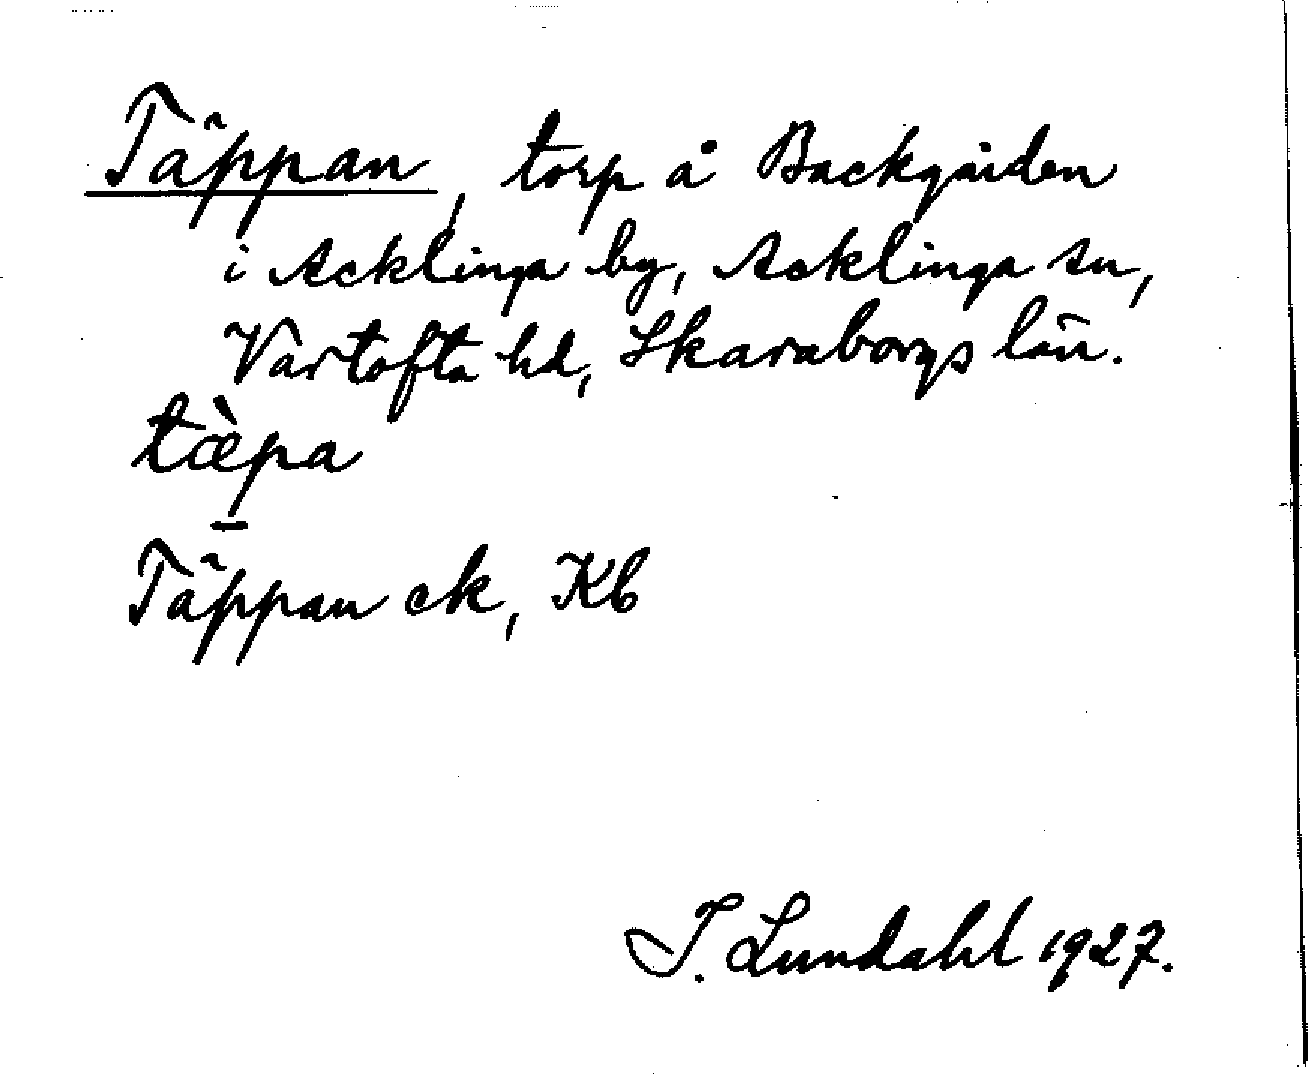 Täppan, torp å Backgården
i Acklinga by, Acklinga sn,
Vartofta hd, Skaraborgs län.
tæ̀pa
Täppan ek, Kb
I. Lundahl 1927.